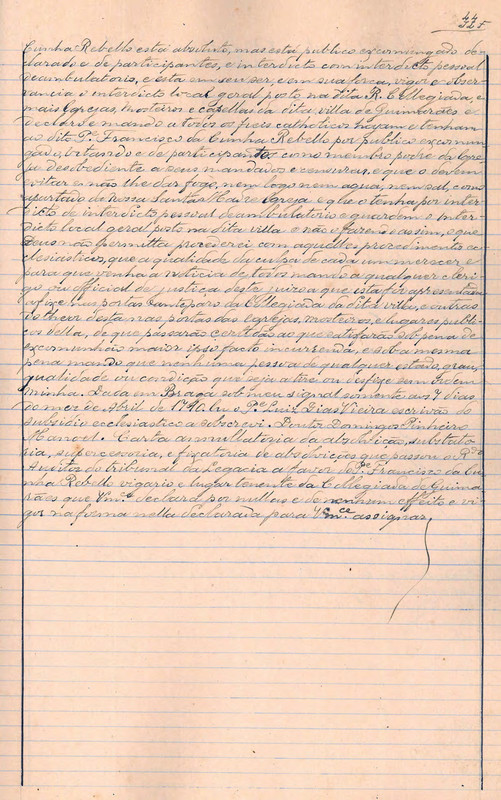 Cunha Rebello está absoluto, mas está publico excomungado de-
clarado e de participantes, e interdicto com interdicto pessoal
deambulatorio, e está em seu ser, e em sua força, vigor e obser-
vancia o interdicto local geral posto na dita R. Collegiada, e
mais Egrejas, Mosteiros e capellas da dita villa de Guimarães e
declaro e mando a todos os fieis catholicos hajam e tenham
ao dito Pe. Francisco da Cunha Rebello por publico excomun-
gado, vitando e de participantes como membro podre da Egre-
ja desobediente a seus mandados e censuras, e que o devem
evitar e não lhe dar fogo, nem logo nem agua, nem sal, como
apartado da nossa Santa Madre Egreja e que o tenha por inter-
dicto de interdicto pessoal deambulatorio e guardem o Inter-
dicto local geral posto na dita villa e não o fazendo assim, o que
Deus não permitta procederei com aquelles procedimentos ec-
clesiasticos, que a qualidade da culpa de cada um merecer e
para que venha á noticia de todos mando a qualquer cleri-
go ou official de justiça deste juizo a que esta for apresentada
a fixe nas portas da Collegiada da dita villa, e outras
do theor desta nas portas das Egrejas, Mosteiros, e lugares publi-
cos della, de que passarão certidão ao que satisfarão sob pena de
excomunhão maior ipso facto incurrenda, e sob a mesma
pena mando que nenhuma pessoa de qualquer estado, grau,
qualidade ou condição que seja a tire ou desfixe sem ordem
minha. Dada em Braga sob meu signal somente aos 7 dias
do mez de Abril de 1740. Eu o Pe. Luiz Dias Vieira escrivão do
subsidio ecclesiastico a subscrevi. Doutor Domingos Pinheiro
Manoel. Carta annullatoria da absolvição, substato-
ria, supercessoria, e fixatoria de absolvições que passou o Rdo
do tribunal da Legacia a favor de Pe. Francisco da Cu-
nha Rebello vigario e lugar tenente da Collegiada de Guima-
rães que Vmce. declara por nullas e de nenhum effeito e vi-
gor na forma nella declarada para Vmce. assignar.